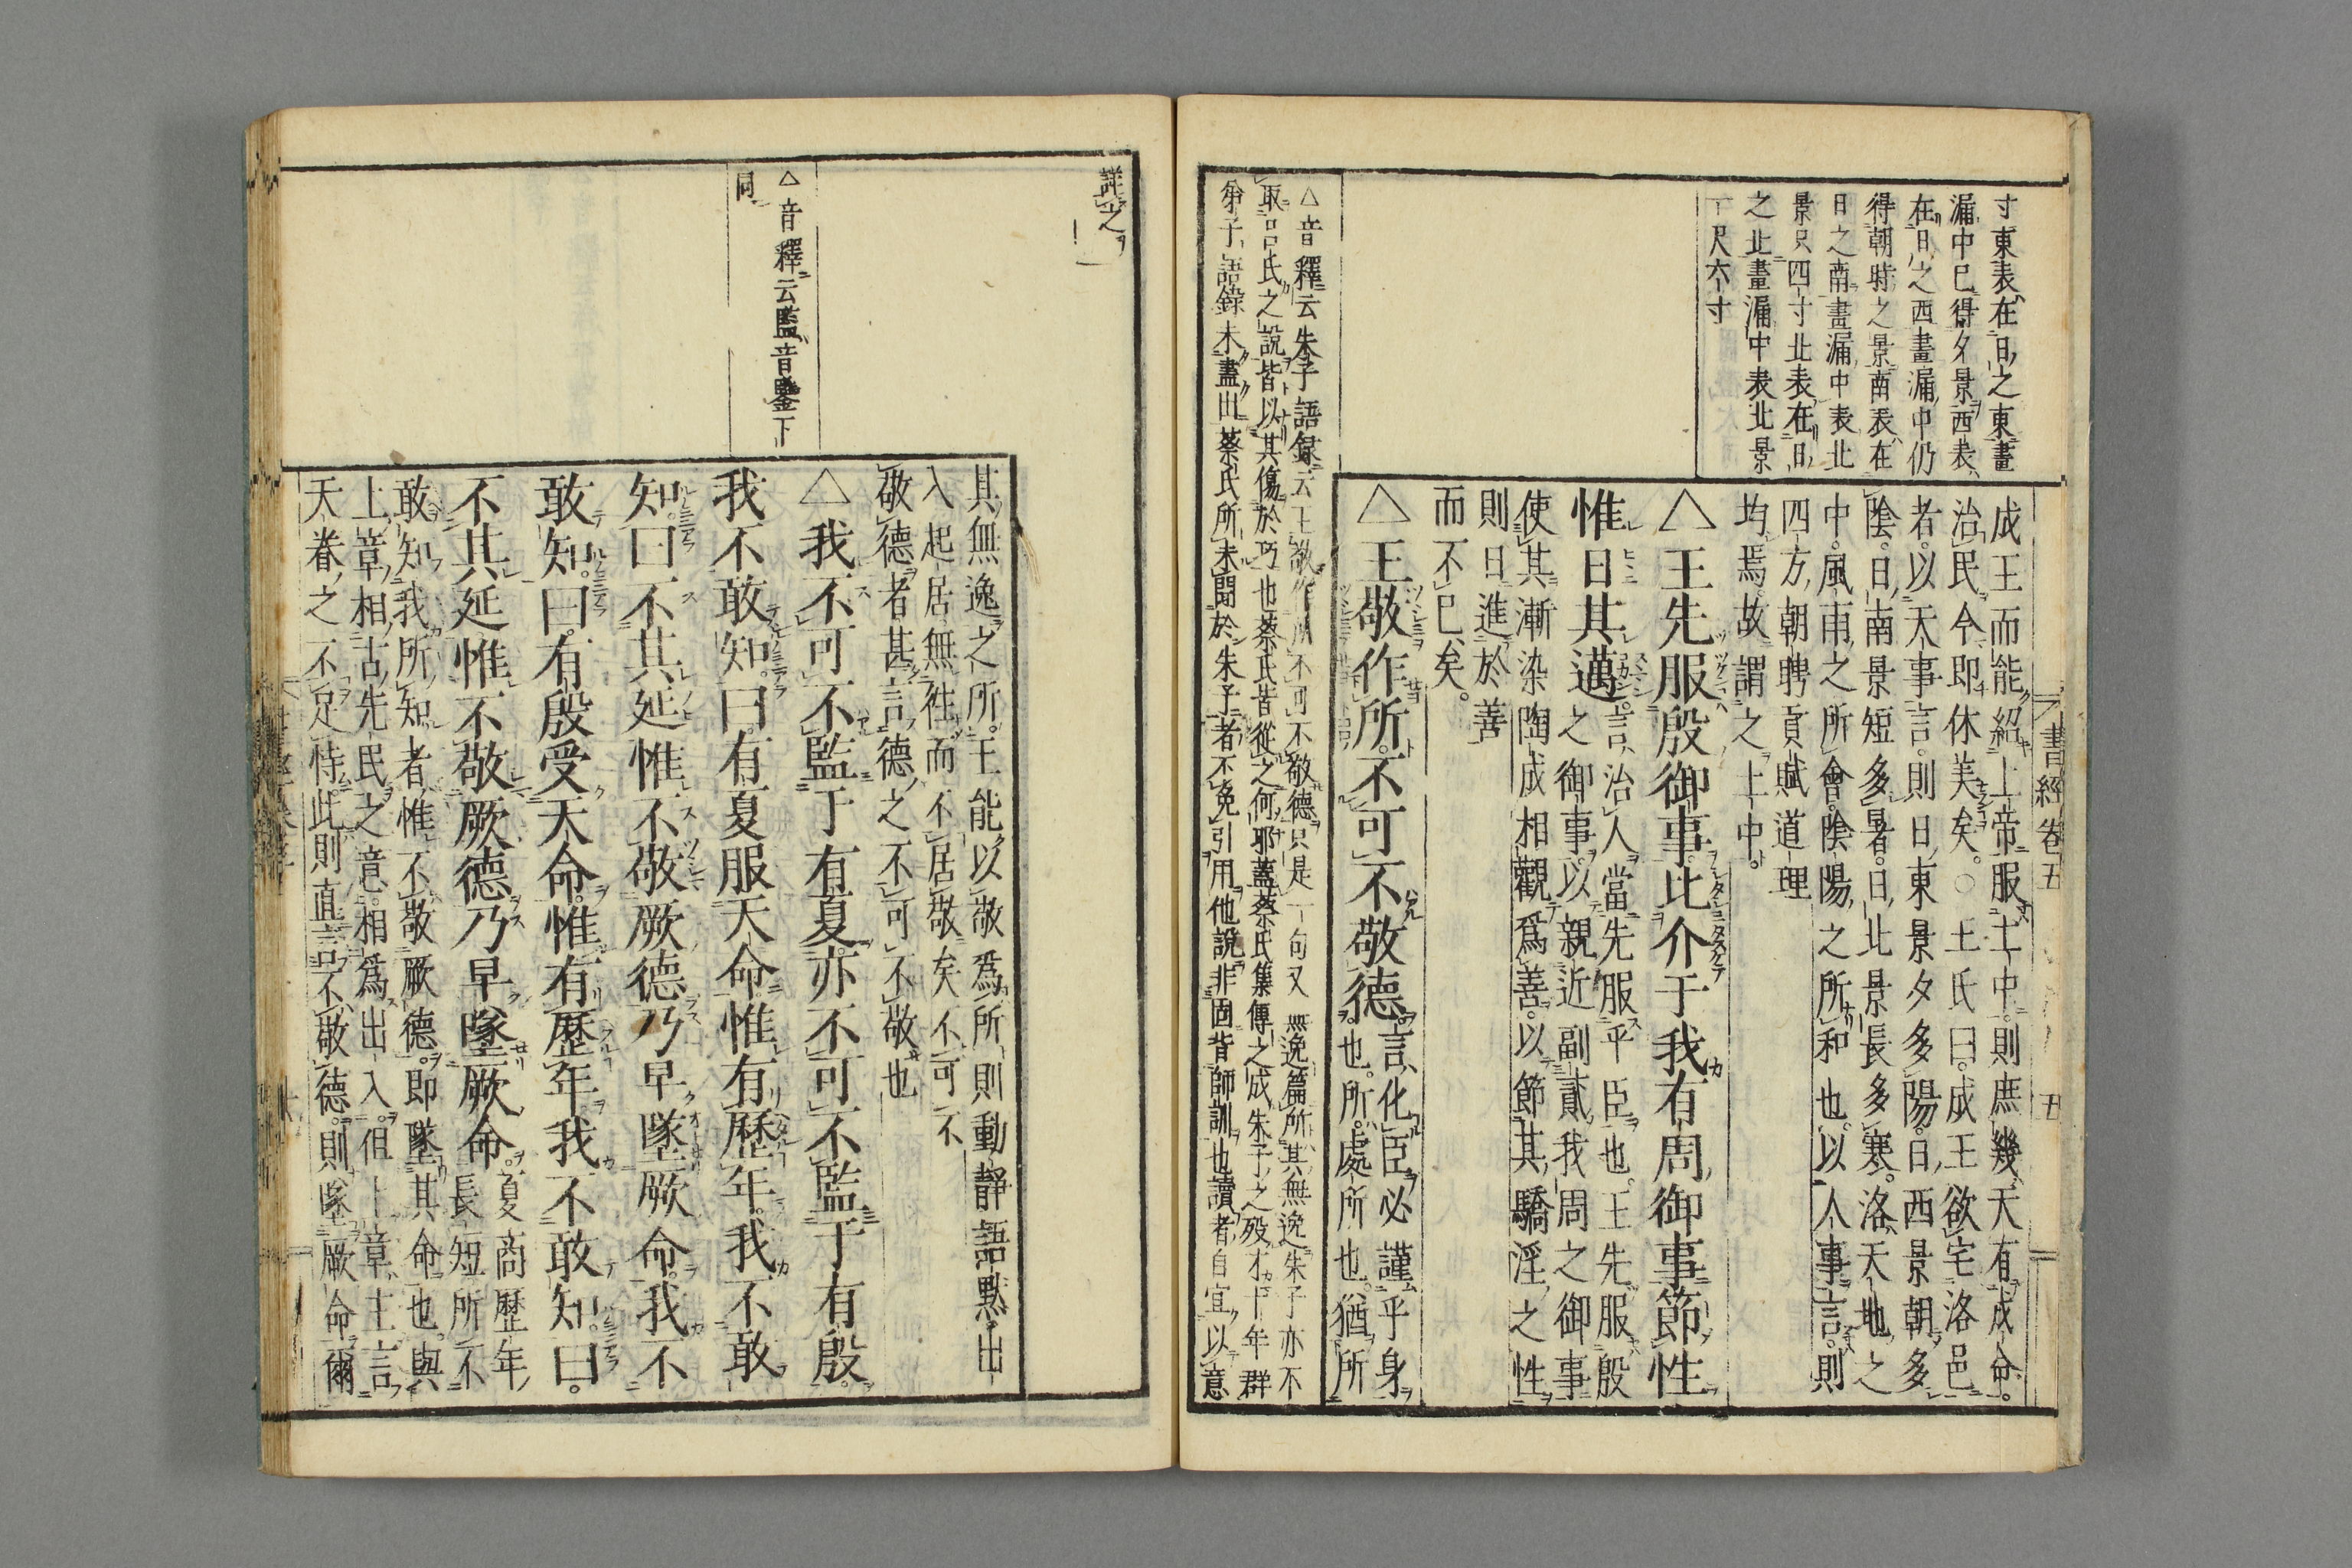 寸東表在日之東晝
漏中已得夕景西表
在日之西晝漏中仍
得朝時之景南表在
日之南晝漏中表北
景只四寸北表在日
之北晝漏中表北景
一尺六寸
成王而能紹上帝服土中則庶幾天有成命。
治民今即休美矣。○王氏曰。成王欲宅洛邑
者。以天事言。則日東景夕多陽。日西景朝多
陰。日南景短多暑。日北景長多寒。洛天地之
中。風雨之所會。陰陽之所和也。以人事言。則
四方朝聘貢賦道理
均焉。故謂之土中。
△王先服殷御事比介于我有周御事節性
惟日其邁。言治人當先服乎臣也。王先服殷
之御事以親近副貳我周之御事
使其漸染陶成相觀爲善。以節其驕淫之性
則日進於善
而不已矣。
△王敬作所。不可不敬德。言化臣必謹乎身
也。所。處所也。猶所
△音釋云朱子語錄云王敬作所不可不敬德只是一句又無逸篇所其無逸朱子亦不
取呂氏之說皆以其傷於巧也蔡氏皆從之何耶蓋蔡氏集傳之成朱子之歿才十年群
弟子語錄未盡出蔡氏所未聞於朱子者不免引用他說非固背師訓也讀者自宜以意
書經卷五
五
詳之
其無逸之所。王能以敬爲所則動靜語默出
入起居無往而不居敬矣不可不
敬德者甚言德之不可不敬也
△音釋云監音鑒下
同
△我不可不監于有夏亦不可不監于有殷
我不敢知。曰有夏服天命惟有歷年。我不敢
知。曰不其延惟不敬厥德乃早墜厥命。我不
敢知。曰。有殷受天命。惟有歷年我不敢知。曰。
不其延惟不敬厥德乃早墜厥命。夏商歷年
長短所不
敢知我所知者惟不敬厥德。即墜其命也。與
上章相古先民之意。相爲出入。但上章主言
天眷之不足恃。此則直言不敬德。則墜厥命爾